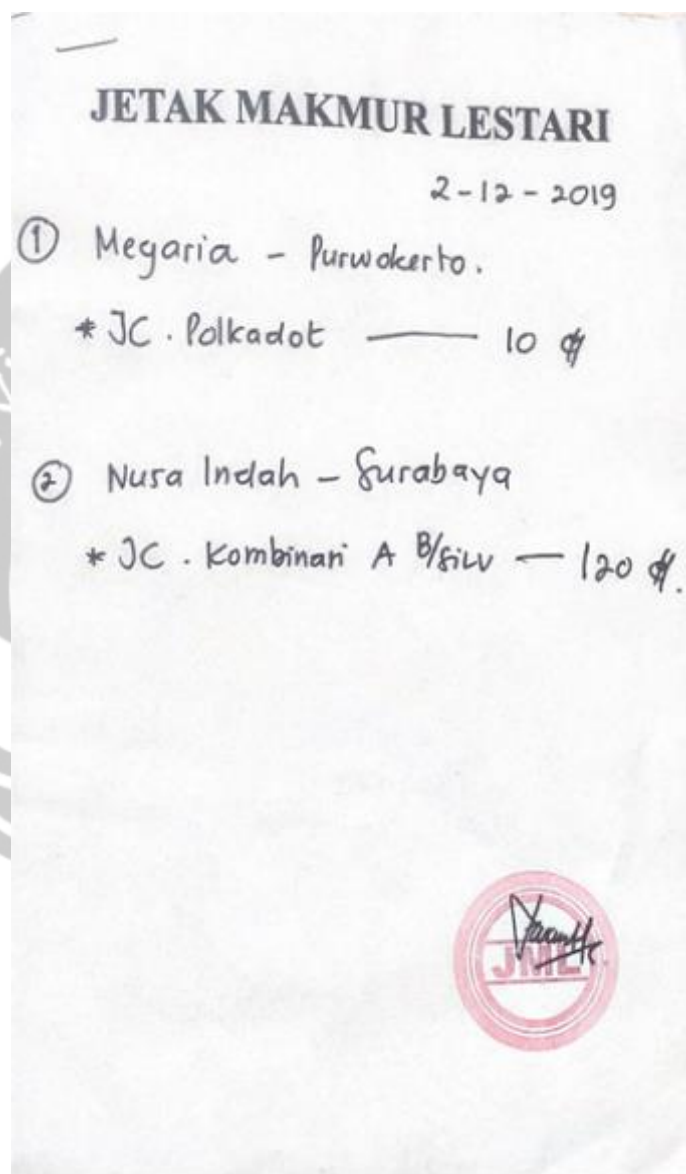 JETAK MAKMUR LESTARI
2-12-2019
① Megaria - Purwokerto.
* JC. Polkadot — 10
② Nusa Indah - Surabaya
* JC. Kombinasi A B/silv — 120
JML